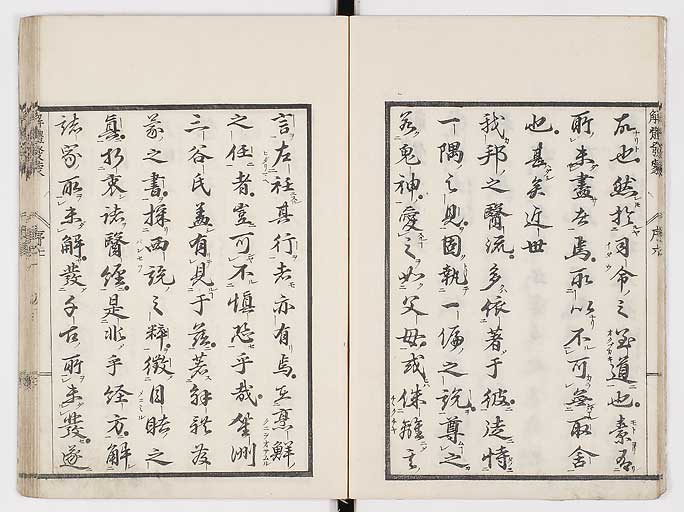 故也。然於司命之至道也。素有
所未盡者焉。所以不可無取舍
也。甚矣近世
我邦之醫流。多依著于彼。徒恃
一隅之見。固執一偏之説。尊之
若鬼神。愛之如父母。或侏離之
言。左衽其行者亦有焉。
之任者。豈可不慎恐乎哉。
三谷氏蓋有見于茲。著解體發
蒙之書。採西説之粹。徵目睹之
真。折衷諸醫經。是非乎經方。解
諸家所未解。發千古所未發。遂
解體發蒙